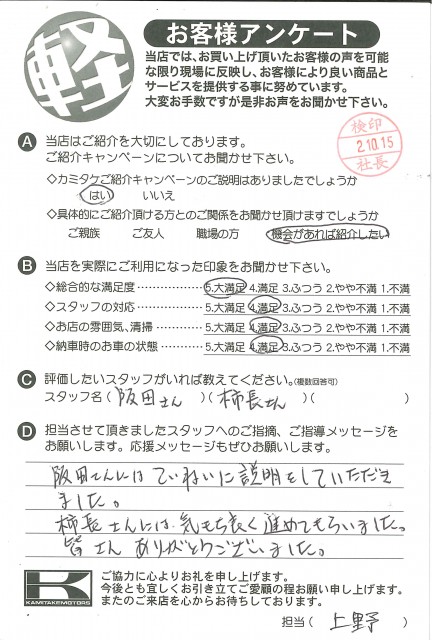 軽
お客様アンケート
当店では、お買い上げ頂いたお客様の声を可能
な限り現場に反映し、お客様により良い商品と
サービスを提供する事に努めています。
大変お手数ですが是非お声をお聞かせ下さい。
検印
2.10.15
社長
A 当店はご紹介を大切にしております。
ご紹介キャンペーンについてお聞かせ下さい。
◇カミタケご紹介キャンペーンのご説明はありましたでしょうか
はい いいえ
◇具体的にご紹介頂ける方とのご関係をお聞かせ頂けますでしょうか
ご親族 ご友人 職場の方 機会があれば紹介したい
B 当店を実際にご利用になった印象をお聞かせ下さい。
◇総合的な満足度 5.大満足 4.満足 3.ふつう 2.やや不満 1.不満
◇スタッフの対応 5.大満足 4.満足 3.ふつう 2.やや不満 1.不満
◇お店の雰囲気、清掃 5.大満足 4.満足 3.ふつう 2.やや不満 1.不満
◇納車時のお車の状態 5.大満足 4.満足 3.ふつう 2.やや不満 1.不満
C 評価したいスタッフがいれば教えてください。(複数回答可)
スタッフ名(阪田さん)(柿長さん)( )
D 担当させて頂きましたスタッフへのご指摘、ご指導メッセージを
お願いします。応援メッセージもぜひお願いします。
阪田さんにはていねいに説明をしていただき
ました。
柿長さんには気もち良く進めてもらいました。
皆さんありがとうございました。
K
KAMITAKEMOTORS
ご協力に心よりお礼を申し上げます。
今後とも宜しくお引き立てご愛顧の程お願い申し上げます。
またのご来店を心からお待ちしております。
担当(上野)